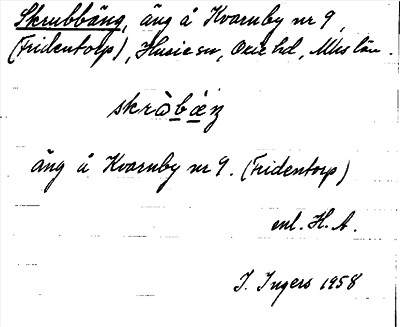 Skrubbäng, äng å Kvarnby nr 9,
(Fridentorp), Husie sn, Oxie hd, Mlus län.
skràbæŋ
äng å Kvarnby nr 9. (Fridentorp)
enl. H. A.
I. Ingers 1958